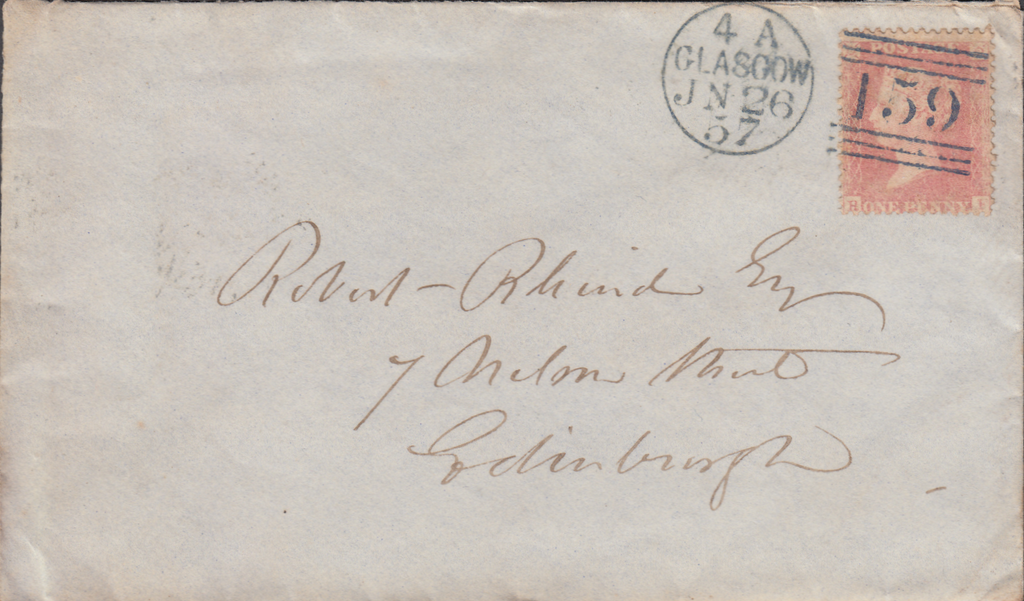 4 A
GLASGOW
JN 26
57
POST
159
ONE PENNY
Robert Rhind Esq
7 Nelson Street
Edinburgh